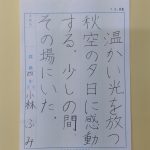 温かい光を放つ
秋空の夕日に感動
する。少しの間
その場にいた。
小林ふみ